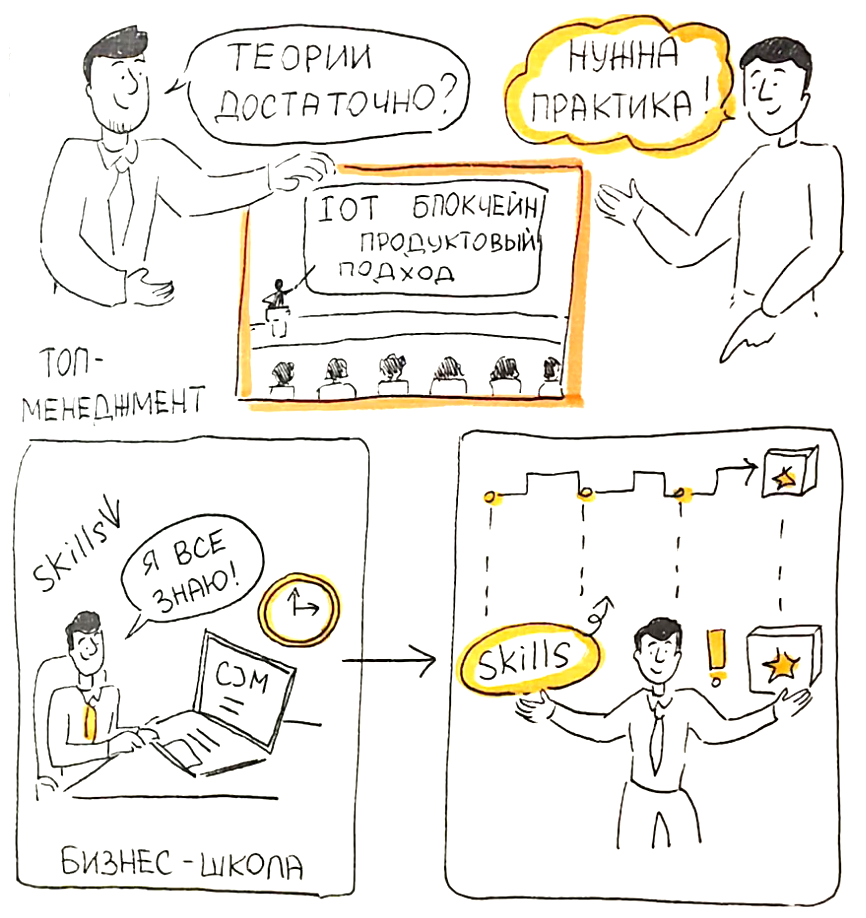 ТЕОРИИ
ДОСТАТОЧНО?
НУЖНА
ПРАКТИКА!
IOT БЛОКЧЕЙН
ПРОДУКТОВЫЙ
ПОДХОД
ТОП-
МЕНЕДЖМЕНТ
Skills
Я ВСЕ
ЗНАЮ!
CJM
БИЗНЕС-ШКОЛА
Skills
!